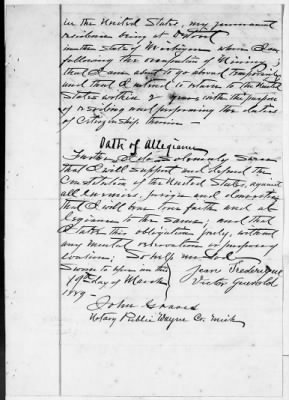 in the United States, my permanent
residence being at Detroit
in the State of Michigan where I am
following the occupation of Mining;
that I am about to go abroad temporarily
and that I intend to return to the United
States within 2 years with the purpose
of residing and performing the duties
of citizenship therein
Oath of Allegiance
Further, I do Solemnly Swear
that I will support and defend the
Constitution of the United States, against
all enemies, foreign and domestic;
that I will bear true faith and al
legiance to the same; and that
I take this obligation freely, without
any mental reservation or purpose of
evasion; So help me God
Sworn to before me this
19th day of March
1889 -
Jean Frederique
Victor Griswold
John Graves
Notary Public Wayne Co. Mich